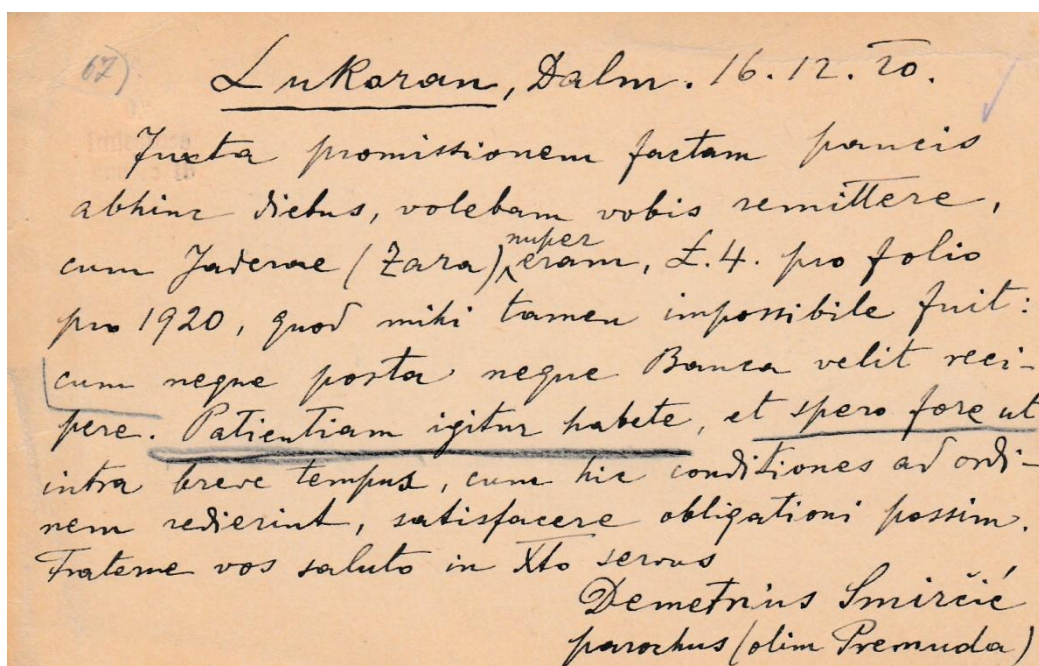 67)
Lukoran, Dalm. 16.12.20.
Juxta promissionem factam paucis
abhinc diebus, volebam vobis remittere,
cum Jaderae (Zara) nuper eram, £.4. pro folio
pro 1920, quod mihi tamen impossibile fuit:
cum neque posta neque Banca velit reci-
pere. Patientiam igitur habete, et spero fore ut
intra breve tempus, cum hic conditiones ad ordi-
nem redierint, satisfacere obligationi possim.
Fraterne vos saluto in Xto servus
Demetrius Smirčić
parochus (olim Premuda)